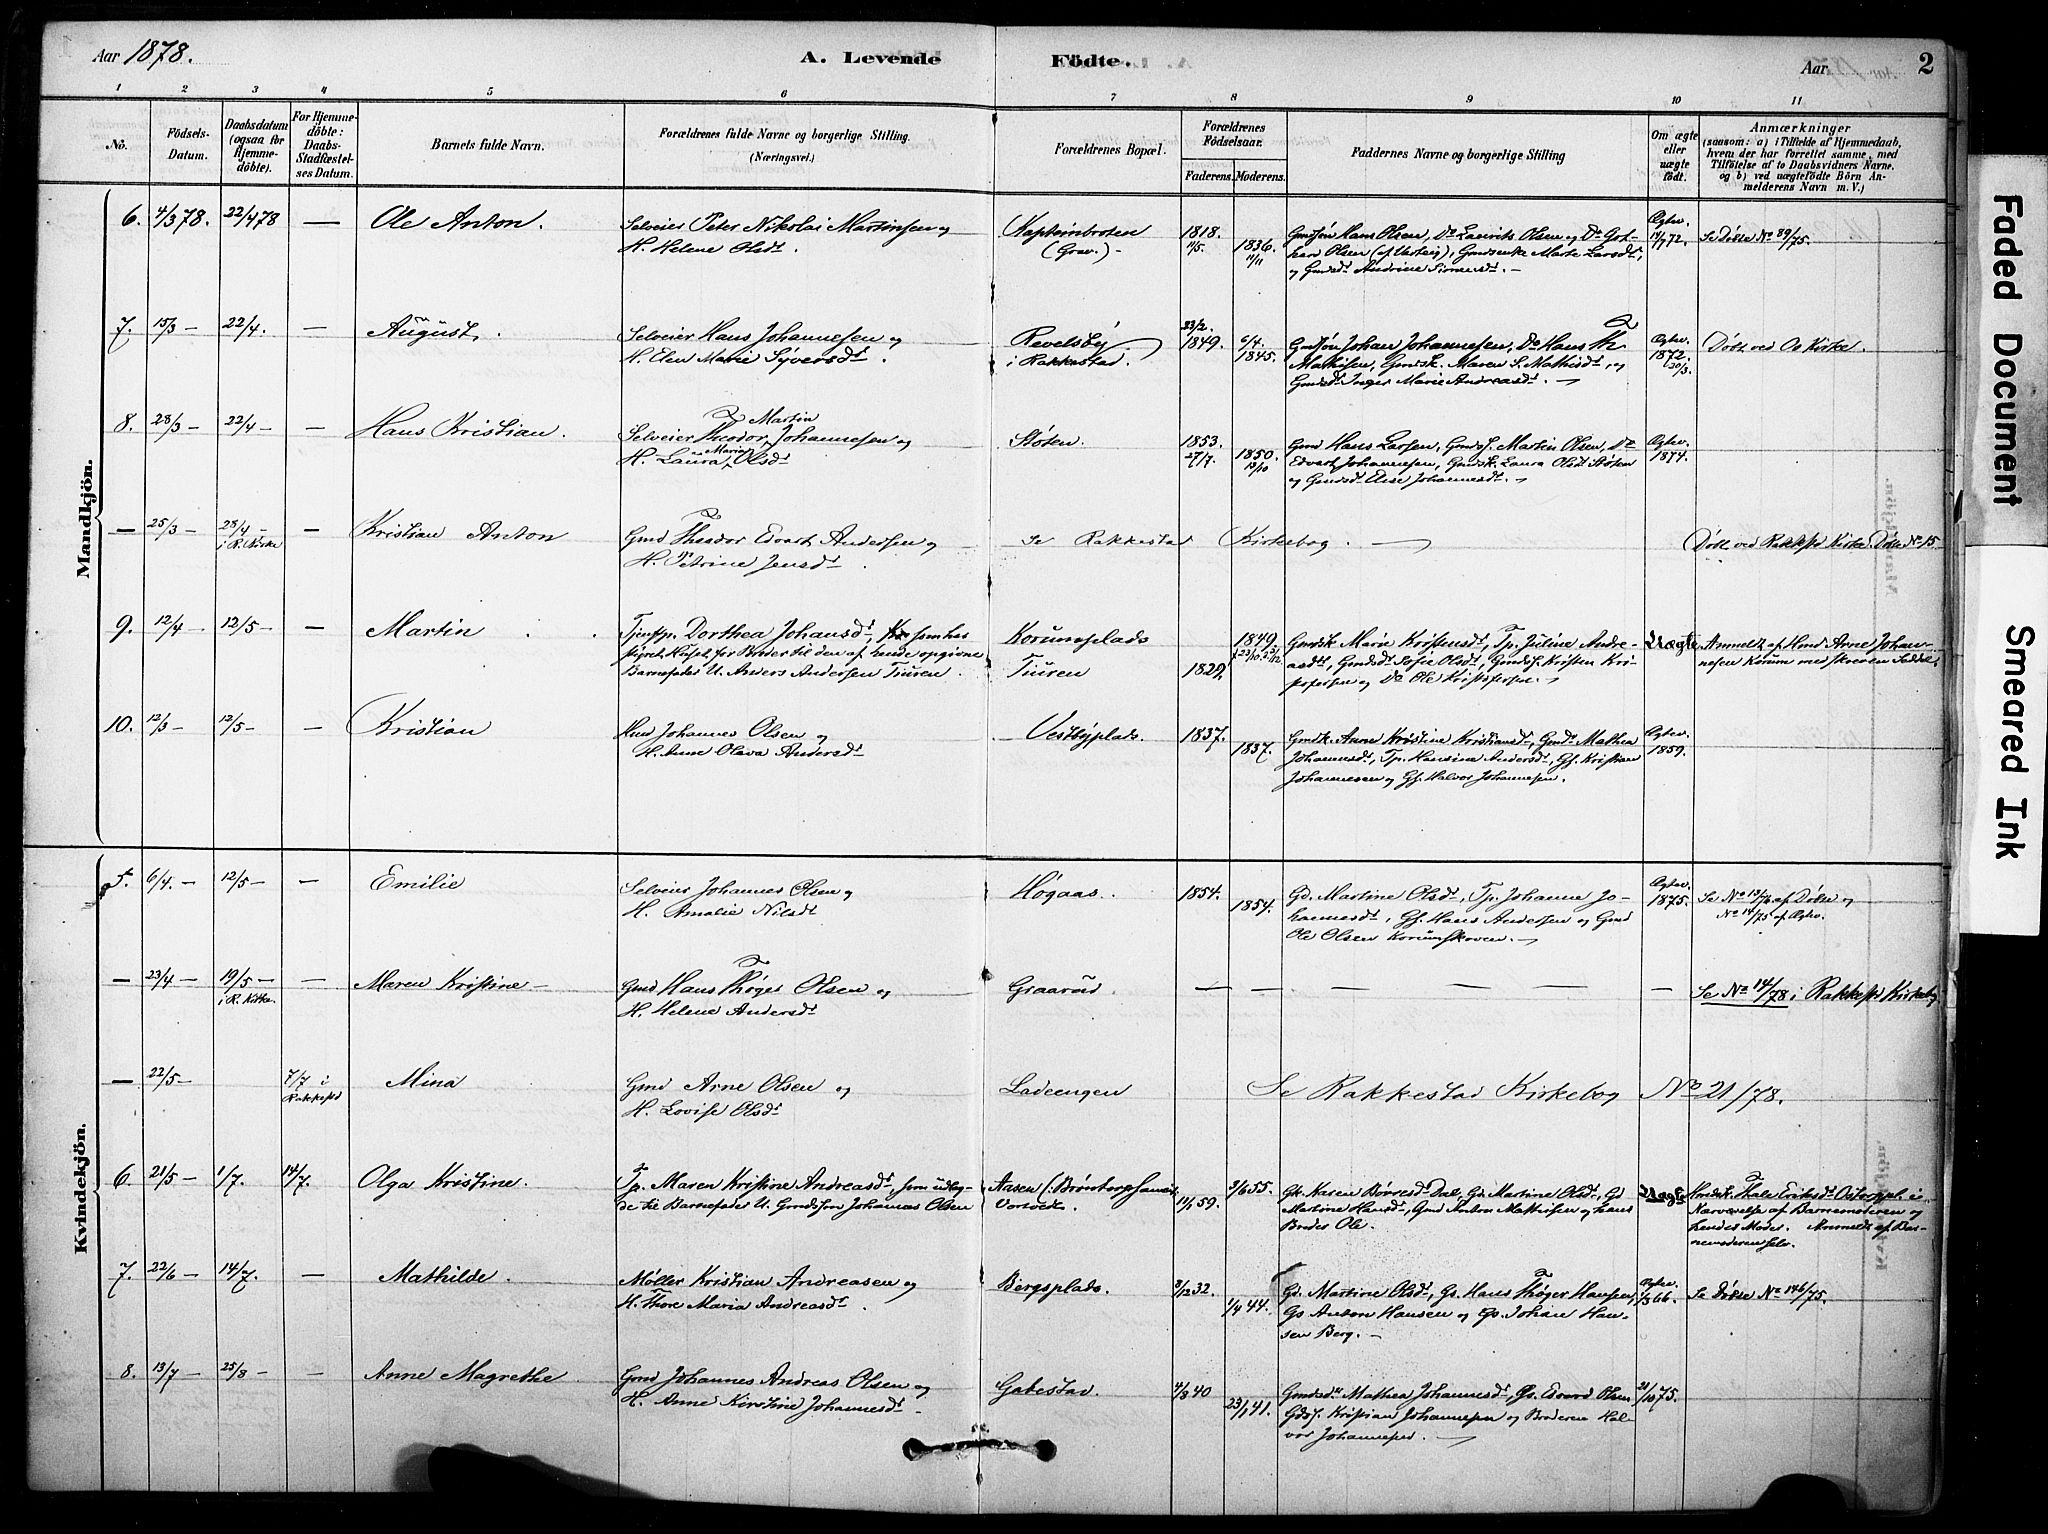 Aar 1878.
A. Levende Födte.
Aar
2
1 2 3 4 5 6 7 8 9 10 11
No.
Födsels-Datum.
Daabsdatum (ogsaa for Hjemme-döbte).
For Hjemme-döbte: Daabs-Stadfæstel-ses Datum.
Barnets fulde Navn.
Forældrenes fulde Navne og borgerlige Stilling.
(Næringsvei.)
Forældrenes Bopæl.
Forældrenes Födselsaar.
Faderens. Moderens.
Faddernes Navne og borgerlige Stilling
Om ægte eller uægte födt.
Anmærkninger
(saasom: a) i Tilfælde af Hjemmedaab,
hvem der har forrettet samme, med
Tilföielse af to Daabsvidners Navne.
og b) ved uægtefödte Börn An-
melderens Navn m. V.)
Mandkjön.
6. 4/3 78. 22/4 78 — Ole Anton.
Selveier Peter Nikolai Martinsen og
H. Helene Olsdt.
Kapteinbroten
(Grav.) —
1818. 11/5. 1836. 11/11
Gmdsøn Hans Olsen, Do Laurits Olsen og Do Got-
hard Olsen (af Varteig), Gmdsenke Marte Larsdt,
og Gmdsdt Andrine Simensdt. —
Ægtev. 14/7 72.
Se Døbte No 89/75.
7. 15/3 — 22/4. — August.
Selveier Hans Johannesen og
H. Elen Marie Syversdt.
Revelsby
i Rakkestad.
23/2. 1849. 6/4. 1845.
Gmdsøn Johan Johannesen, Do Hans Th.
Mathisen, Gmdsk. Maren S. Mathisdt, og
Gmdsdt Inger Marie Andreasdt. —
Ægtev. 1872. 20/3.
Døbt ved Os Kirke.
8. 28/3 — 22/4 — — Hans Kristian.
Selveier Theodor Martin Johannesen og
H. Laura Maria Olsdt
Støten.
1853. 27/7. 1850. 13/10
Gmd Hans Larsen, Gmdsf. Martin Olsen, Do
Edvart Johannesen, Gmdsk. Laura Olsdt Støten
og Gmdsdt Elise Johannesdt. —
Ægtev. 1874.
— 25/3 — 28/4 — i R. Kirke — Kristian Anton
Gmd Theodor Edvart Andersen og
H. Petrine Jensdt.
Se Rakkestad Kirkebog. —
Døbt ved Rakkestd Kirke. Døbte No 15
9. 12/4 — 12/5 — — Martin
Tjenstp. Dorthea Johansdt, som har
styret Huset for Broder til den af hende opgivne
Barnefader U. Anders Andersen Tiuren.
Korumsplads
Tiuren
1829. 1849
Gmdsk Marie Kristensdt, Tp. Juline Andre-
asdt, Gmdsdt Sofie Olsdt, Gmdsf. Kristen Kri-
stofersen og Do Ole Kristofersen. —
Uægte
Anmeldt af Hmd Arne Johan-
nesen Korum med skreven Seddel.
10. 12/3 — 12/5 — — Kristian
Hmd Johannes Olsen og
H. Anne Olava Andersdt
Vestbyplads.
1837. 1837.
Gmdsk. Anne Kristine Kristiansdt, Gmdsdt Mathea
Johannesdt, Tp. Hansine Andersdt, Gf. Kristian
Johannesen og Gf. Halvor Johannesen.
Ægtev. 1859.
Kvindekjön.
5. 6/4. — 12/5 — — Emilie
Selveier Johannes Olsen og
H. Amalie Nilsdt
Høgaas.
1854. 1854.
Gd. Martine Olsdt, Tp. Johanne Jo-
hannesdt, Gf. Hans Andersen og Gmd
Ole Olsen Korumskoven. —
Ægtev. 1875.
Se No 13/76 af Døbte og
No 14/75 af Ægtev.
— 23/4 — 19/5 — i R. Kirke. — Maren Kristine —
Gmd Hans Thøger Olsen og
H. Helene Andersdt
Graarud. — — — — — — —
Se No 14/78 i Rakkestd Kirkebog
— 22/5 — 7/7 i Rakkestd Mina
Gmd Arne Olsen og
H. Lovise Olsdt
Ladeengen
Se Rakkestad Kirkebog No 21/78.
6. 21/5 — 1/7. 14/7. Olga Kristine.
Tp. Maren Kristine Andreasdt, som udlag-
de til Barnefader U. Gmdssøn Johannes Olsen
Aasen (Børntorp)
Vortvedt.
11/1 59. 3/6 55.
Gk. Karen Børresdt Dal, Gd. Martine Olsdt, Gd
Martine Hansdt, Gmd Anton Mathisen og hans
Broder Ole.
Uægte
Hmdsk. Thale Eriksdt Ostorppl. i
Nærværelse af Barnemoderen og
hendes Moder. Anmeldt af Bar-
nemoderen selv.
7. 22/6 — 14/7. — Mathilde.
Møller Kristian Andreasen og
H. Thore Maria Andreasdt.
Bergsplads.
3/12 32. 1/4 44.
Gd. Martine Olsdt, Gs. Hans Thøger Hansen,
Gs Anton Hansen og Gs. Johan Han-
sen Berg. —
Ægtev. 1/3 66.
Se Døbte No 146/75.
8. 13/7 — 25/8 — Anne Magrethe
Gmd Johannes Andreas Olsen og
H. Anne Kirstine Johannesdt.
Gabestad.
4/8 40 23/1 41.
Gmdsdt Mathea Johannesdt, Gs. Edvard Olsen
Gdsf. Kristian Johannesen og Broderen Hal-
vor Johannesen. —
21/10 75.
Faded Document
Smeared Ink